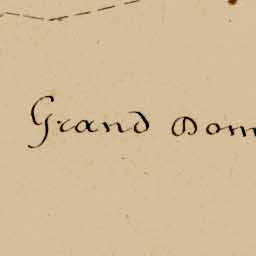 Grand Dom